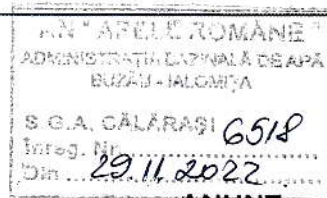 A.N. "APELE ROMÂNE"
ADMINISTRAŢIA BAZINALĂ DE APĂ
BUZĂU - IALOMIŢA
S.G.A. CĂLĂRAŞI
Înreg. Nr. 6518
Din 29.11.2022